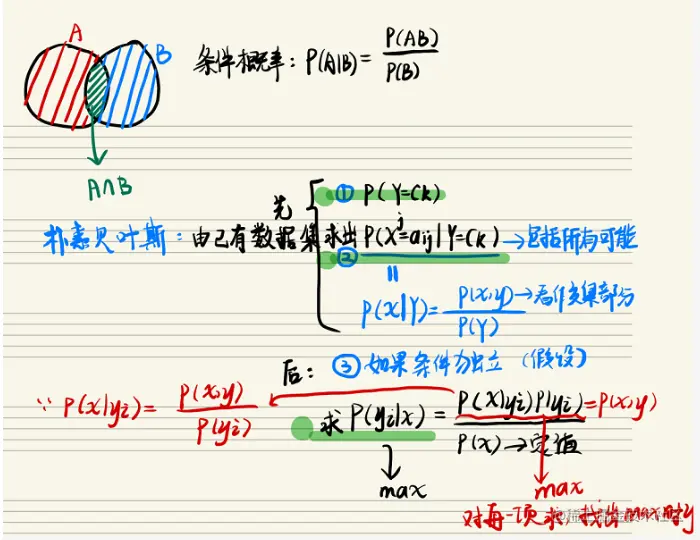 A
B
条件概率：P(A|B)=P(AB)/P(B)
A∩B
先
① P(Y=Ck)
朴素贝叶斯：由已有数据集求出 P(X^j=aij|Y=Ck) →包括所有可能
②
P(x|Y)=P(x,y)/P(Y) →看作交集部分
后：③ 如果条件为独立（假设）
∵ P(x|yi)=P(x,y)/P(yi)
求 P(yi|x)=P(X|yi)P(yi)/P(x) =P(x,y)
P(x)→定值
max
max
对每一项求，找出max时y